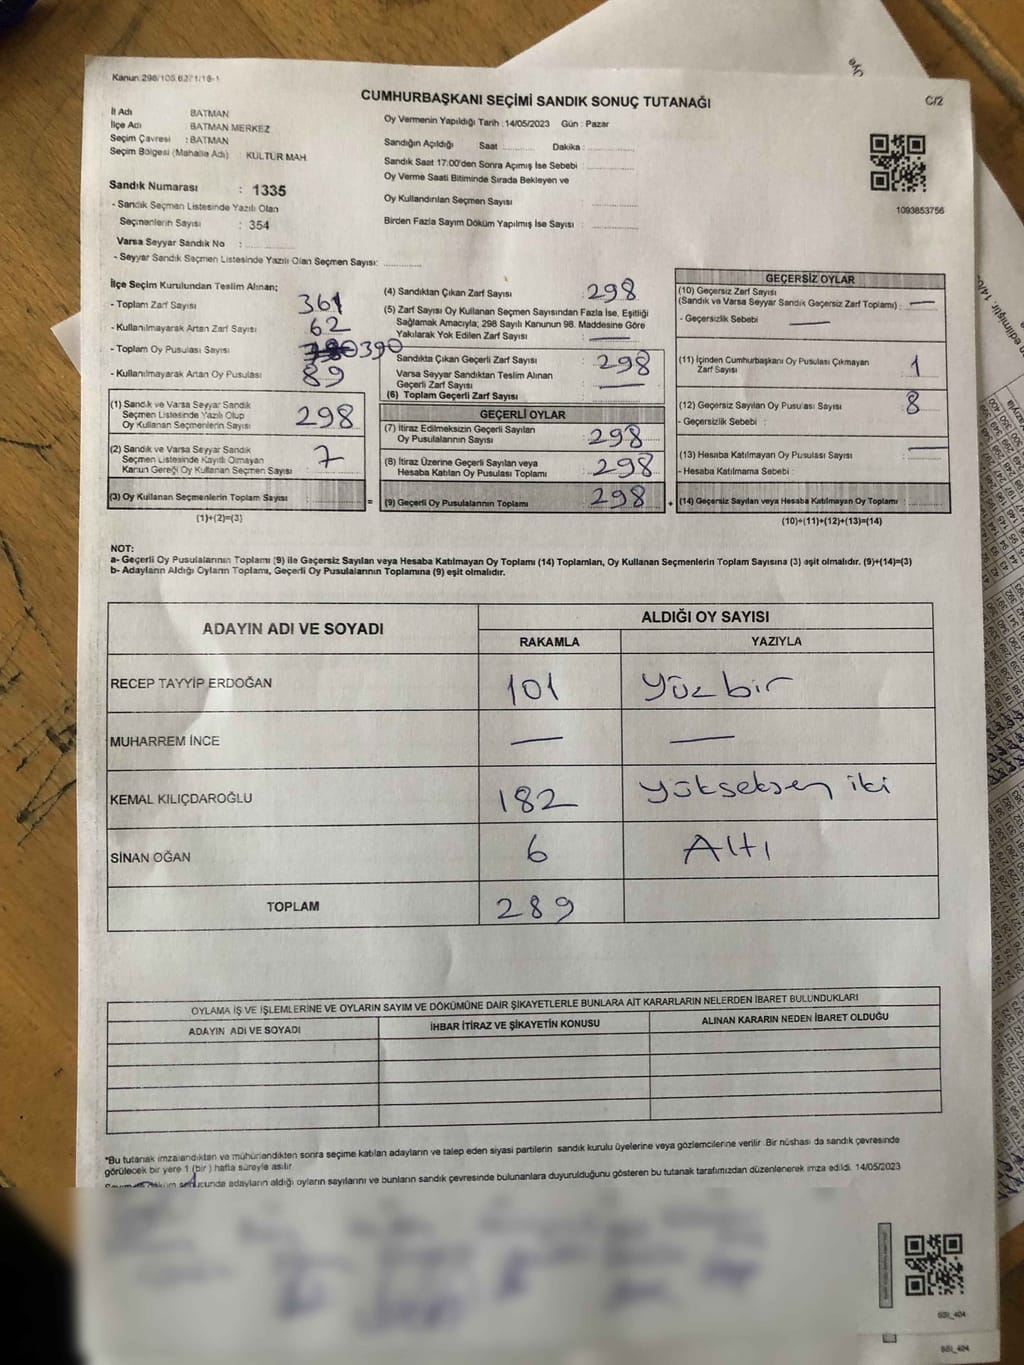 Kanun 298/105,6271/18-1
CUMHURBAŞKANI SEÇİMİ SANDIK SONUÇ TUTANAĞI
C/2
İl Adı BATMAN
İlçe Adı BATMAN MERKEZ
Seçim Çevresi : BATMAN
Seçim Bölgesi (Mahalle Adı) : KÜLTÜR MAH.
Sandık Numarası : 1335
- Sandık Seçmen Listesinde Yazılı Olan
Seçmenlerin Sayısı : 354
Varsa Seyyar Sandık No :
- Seyyar Sandık Seçmen Listesinde Yazılı Olan Seçmen Sayısı:
Oy Vermenin Yapıldığı Tarih : 14/05/2023 Gün : Pazar
Sandığın Açıldığı Saat Dakika :
Sandık Saat 17:00'den Sonra Açımış İse Sebebi :
Oy Verme Saati Bitiminde Sırada Bekleyen ve
Oy Kullandırılan Seçmen Sayısı :
Birden Fazla Sayım Döküm Yapılmış İse Sayısı :
1093853756
İlçe Seçim Kurulundan Teslim Alınan;
- Toplam Zarf Sayısı 361
- Kullanılmayarak Artan Zarf Sayısı 62
- Toplam Oy Pusulası Sayısı 390
- Kullanılmayarak Artan Oy Pusulası 89
(1) Sandık ve Varsa Seyyar Sandık
Seçmen Listesinde Yazılı Olup
Oy Kullanan Seçmenlerin Sayısı 298
(2) Sandık ve Varsa Seyyar Sandık
Seçmen Listesinde Kayıtlı Olmayan
Kanun Gereği Oy Kullanan Seçmen Sayısı 7
(3) Oy Kullanan Seçmenlerin Toplam Sayısı =
(1)+(2)=(3)
(4) Sandıktan Çıkan Zarf Sayısı : 298
(5) Zarf Sayısı Oy Kullanan Seçmen Sayısından Fazla İse, Eşitliği
Sağlamak Amacıyla; 298 Sayılı Kanunun 98. Maddesine Göre
Yakılarak Yok Edilen Zarf Sayısı —
Sandıkta Çıkan Geçerli Zarf Sayısı : 298
Varsa Seyyar Sandıktan Teslim Alınan
Geçerli Zarf Sayısı —
(6) Toplam Geçerli Zarf Sayısı
GEÇERLİ OYLAR
(7) İtiraz Edilmeksizin Geçerli Sayılan
Oy Pusulalarının Sayısı : 298
(8) İtiraz Üzerine Geçerli Sayılan veya
Hesaba Katılan Oy Pusulası Toplamı 298
(9) Geçerli Oy Pusulalarının Toplamı 298 +
GEÇERSİZ OYLAR
(10) Geçersiz Zarf Sayısı
(Sandık ve Varsa Seyyar Sandık Geçersiz Zarf Toplamı) : —
- Geçersizlik Sebebi : —
(11) İçinden Cumhurbaşkanı Oy Pusulası Çıkmayan
Zarf Sayısı : 1
(12) Geçersiz Sayılan Oy Pusulası Sayısı : 8
- Geçersizlik Sebebi :
(13) Hesaba Katılmayan Oy Pusulası Sayısı : —
- Hesaba Katılmama Sebebi :
(14) Geçersiz Sayılan veya Hesaba Katılmayan Oy Toplamı :
(10)+(11)+(12)+(13)=(14)
NOT:
a- Geçerli Oy Pusulalarının Toplamı (9) ile Geçersiz Sayılan veya Hesaba Katılmayan Oy Toplamı (14) Toplamları, Oy Kullanan Seçmenlerin Toplam Sayısına (3) eşit olmalıdır. (9)+(14)=(3)
b- Adayların Aldığı Oyların Toplamı, Geçerli Oy Pusulalarının Toplamına (9) eşit olmalıdır.
ADAYIN ADI VE SOYADI
ALDIĞI OY SAYISI
RAKAMLA YAZIYLA
RECEP TAYYİP ERDOĞAN 101 Yüzbir
MUHARREM İNCE — —
KEMAL KILIÇDAROĞLU 182 yükseksen iki
SİNAN OĞAN 6 Altı
TOPLAM 289
OYLAMA İŞ VE İŞLEMLERİNE VE OYLARIN SAYIM VE DÖKÜMÜNE DAİR ŞİKAYETLERLE BUNLARA AİT KARARLARIN NELERDEN İBARET BULUNDUKLARI
ADAYIN ADI VE SOYADI İHBAR İTİRAZ VE ŞİKAYETİN KONUSU ALINAN KARARIN NEDEN İBARET OLDUĞU
*Bu tutanak imzalandıktan ve mühürlendikten sonra seçime katılan adayların ve talep eden siyasi partilerin sandık kurulu üyelerine veya gözlemcilerine verilir. Bir nüshası da sandık çevresinde
görülecek bir yere 1 (bir) hafta süreyle asılır.
adayların aldığı oyların sayılarını ve bunların sandık çevresinde bulunanlara duyurulduğunu gösteren bu tutanak tarafımızdan düzenlenerek imza edildi. 14/05/2023
SSI_404
SSI_404